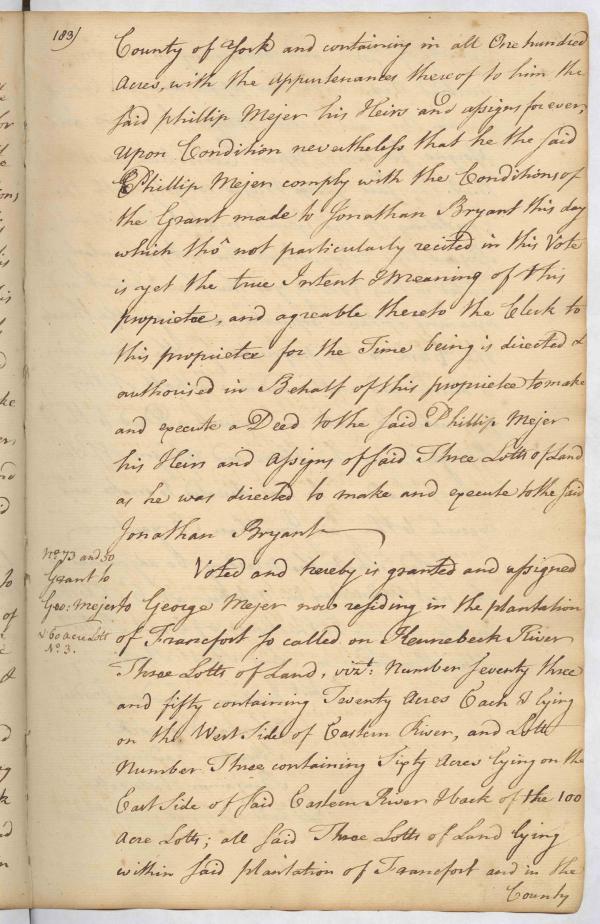 183/
County of York and containing in all One hundred
Acres, with the appurtenances thereof to him the
said phillip Mejer his Heirs and assigns for ever,
Upon Condition nevertheless that he the said
Phillip Mejer comply with the Conditions of
the Grant made to Jonathan Bryant this day
which tho' not particularly recited in this Vote
is yet the true Intent & Meaning of this
proprietee, and agreable thereto the Clerk to
this proprietee for the Time being is directed &
authorised in Behalf of this proprietee to make
and execute a Deed to the said Phillip Mejer
his Heirs and assigns of said Three Lotts of Land
as he was directed to make and execute to the said
Jonathan Bryant
No. 73 and 50
Grant to
Geo: Mejer
& 60 acre Lotts
No. 3.
Voted and hereby is granted and assigned
to George Mejer now residing in the plantation
of Francfort so called on Kennebeck River
Three Lotts of Land, vizt: Number seventy three
and fifty containing Twenty Acres Each & lying
on the West Side of Eastern River, and Lott
Number Three containing Sixty Acres lying on the
East Side of said Eastern River & back of the 100
Acre Lotts; all said Three Lotts of Land lying
within said plantation of Francfort and in the
County